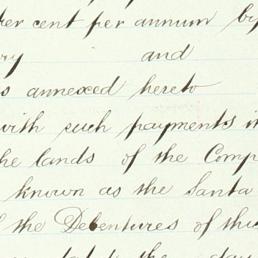 per cent per annum by
and
annexed hereto
with such payments in
the lands of the Comp
known as the Santa
the Debentures of this